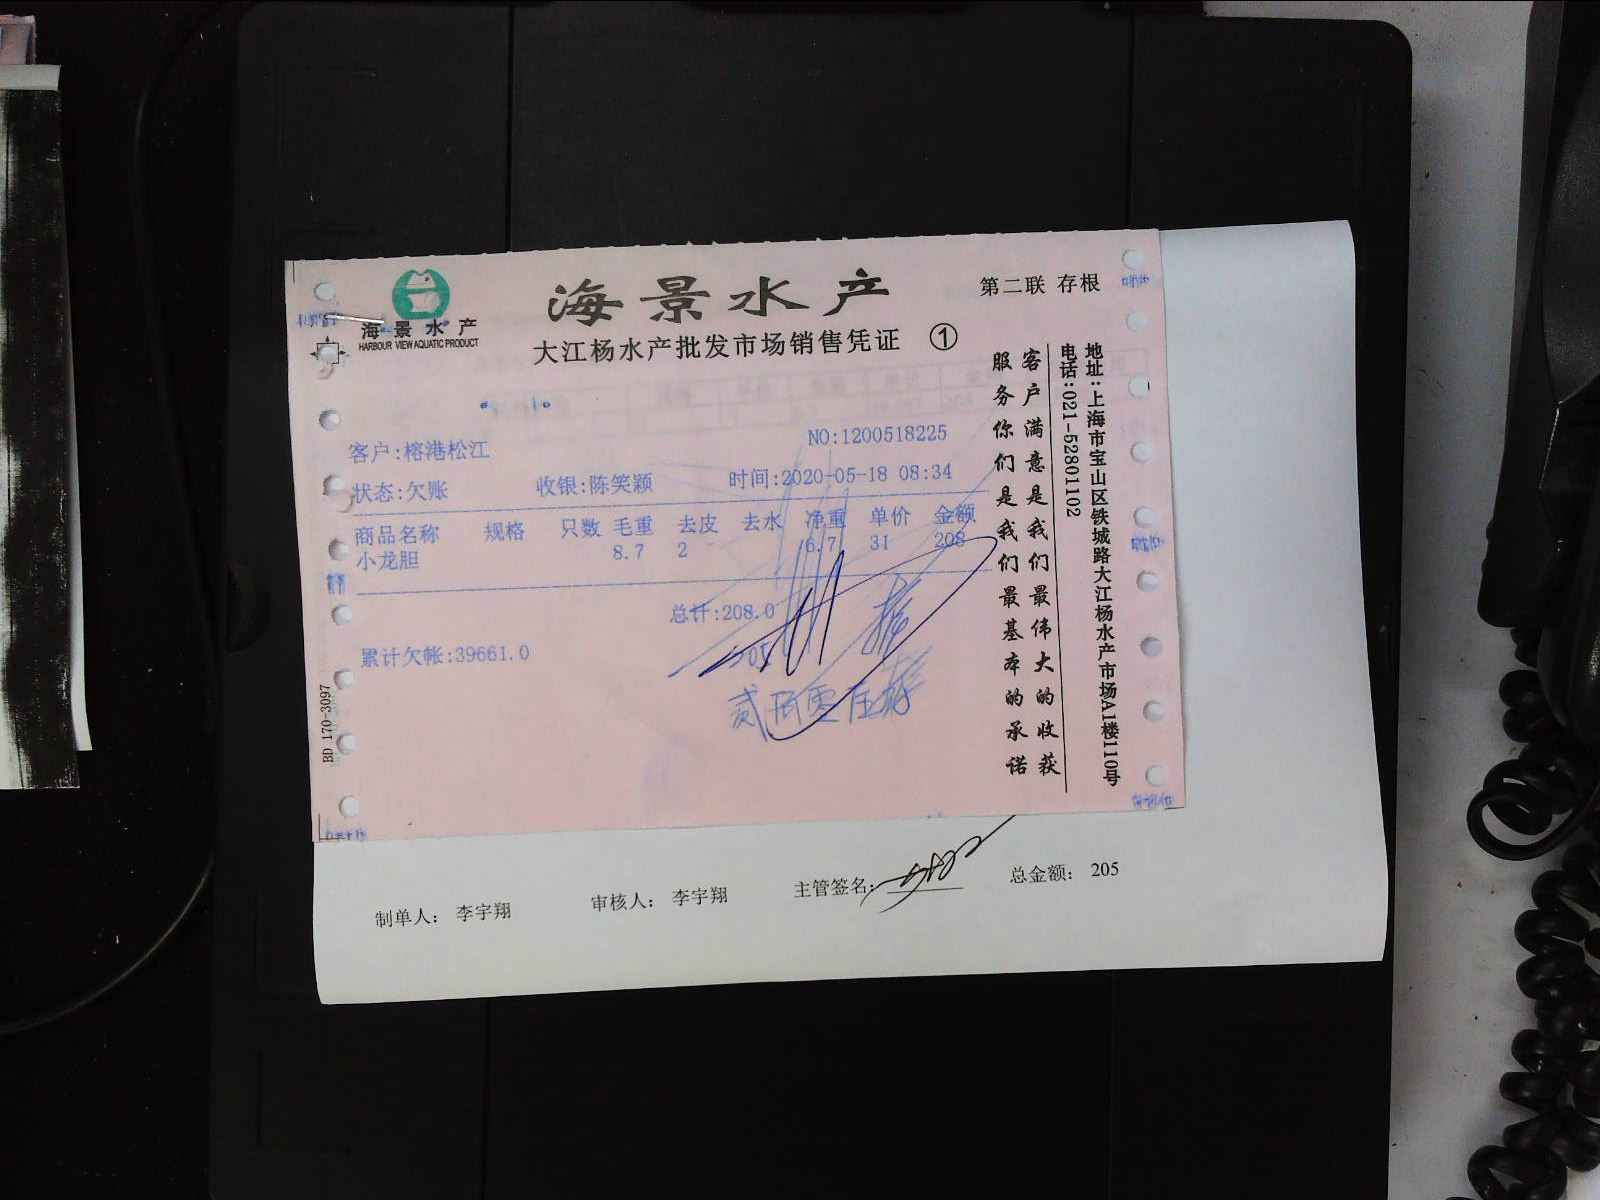 海景水产
HARBOUR VIEW AQUATIC PRODUCT
海景水产
大江杨水产批发市场销售凭证 ①
第二联 存根
客户:榕港松江
NO:1200518225
状态:欠账 收银:陈笑颖 时间:2020-05-18 08:34
商品名称 规格 只数 毛重 去皮 去水 净重 单价 金额
小龙胆 8.7 2 6.7 31 208
总计:208.0
累计欠帐:39661.0
205
贰佰零伍
客户满意是我们最伟大的收获
服务你们是我们最基本的承诺
地址:上海市宝山区铁城路大江杨水产市场A1楼110号
电话:021-52801102
BD 170-3097
制单人: 李宇翔 审核人: 李宇翔 主管签名: 总金额: 205